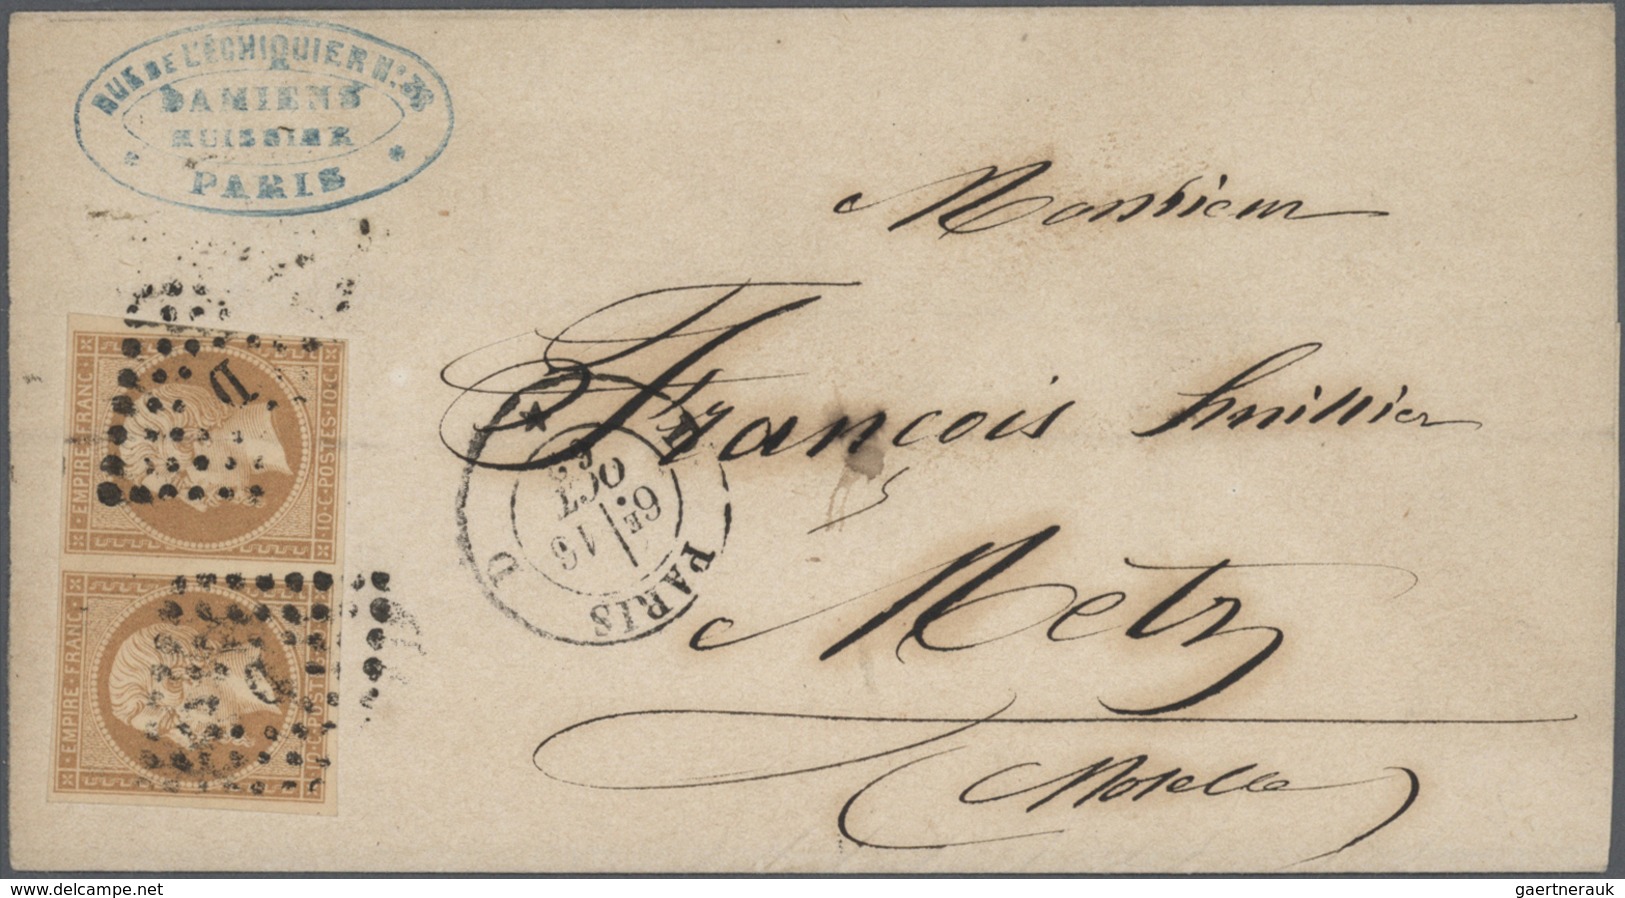 RUE DE L'ÉCHIQUIER No. 36
DAMIENS
HUISSIER
PARIS
Monsieur
François huissier
Metz
Moselle
EMPIRE FRANC.
10·C·POSTES·10·C
D
EMPIRE FRANC.
10·C·POSTES
D
PARIS
6E
16
OCT
D
www.delcampe.net
gaertnerauk